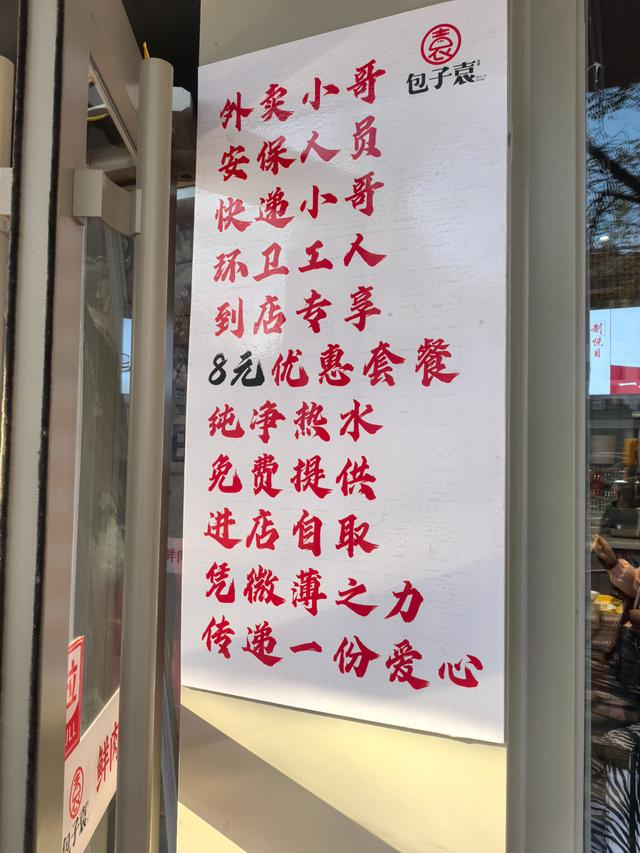 袁
包子袁
外卖小哥
安保人员
快递小哥
环卫工人
到店专享
8元优惠套餐
纯净热水
免费提供
进店自取
凭微薄之力
传递一份爱心
制悦目
鲜肉
袁
包子袁